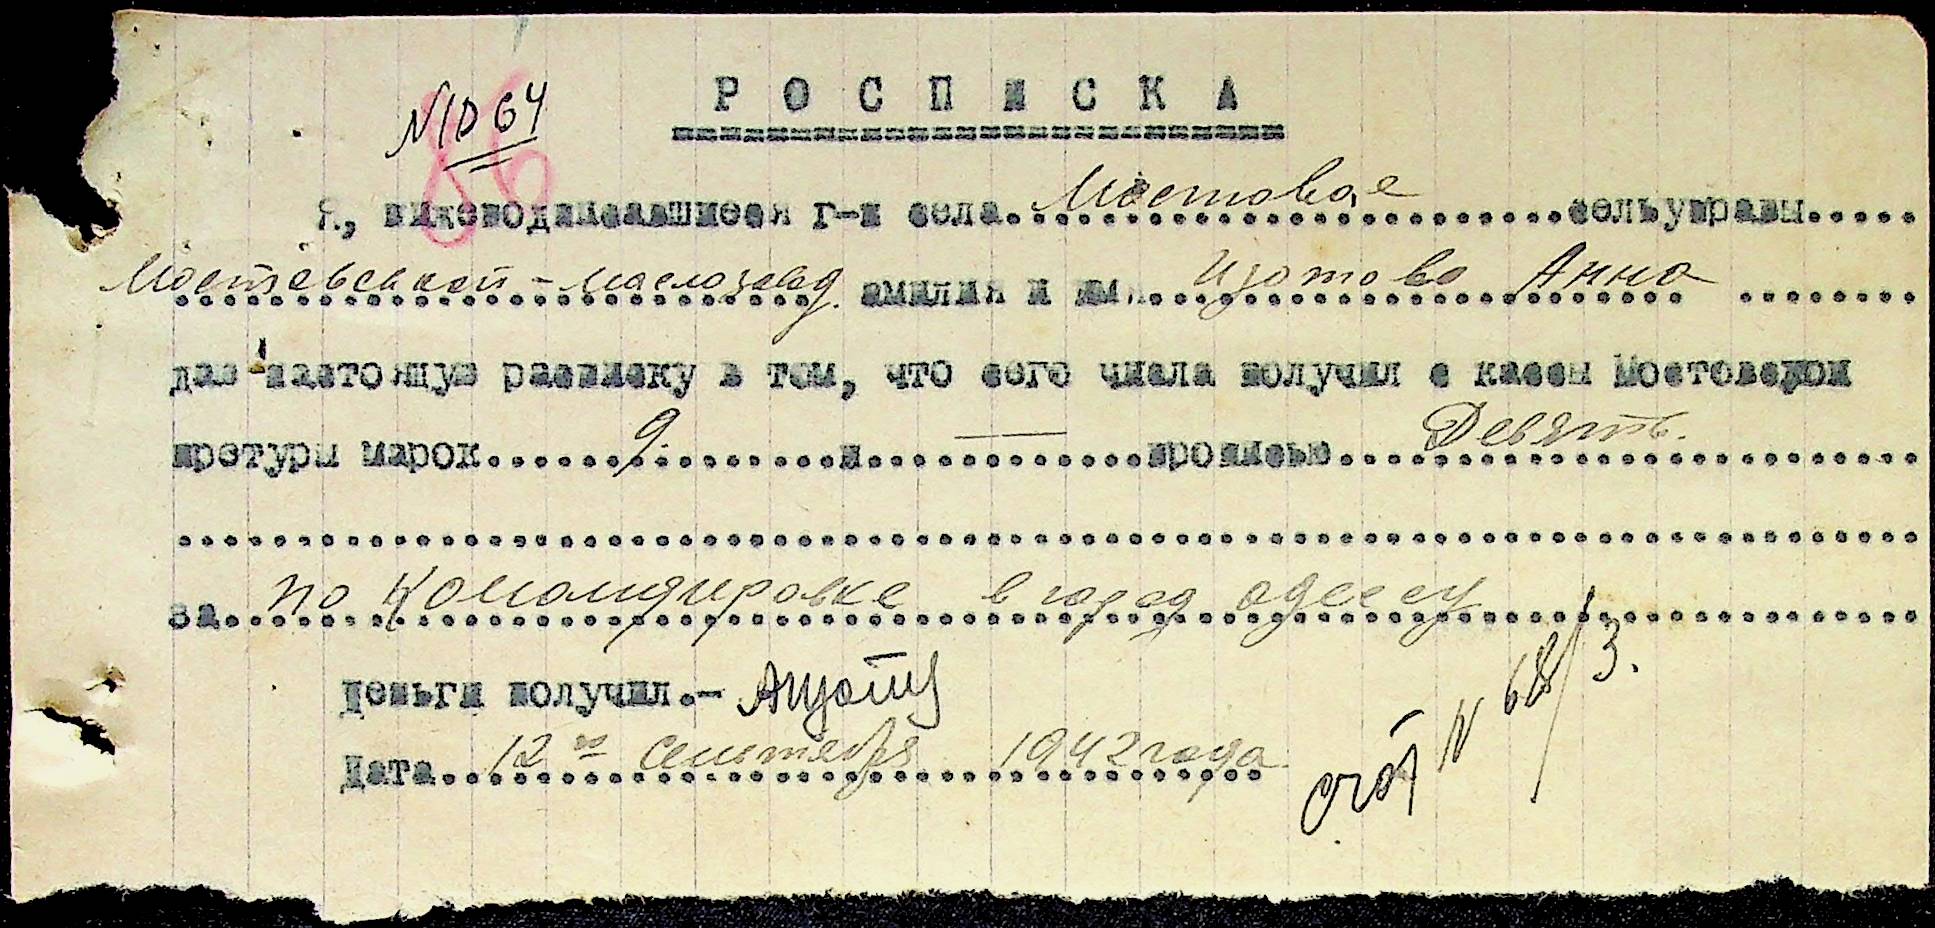 N 1064
86
Р О С П И С К А
Я, нижеподписавшиеся г-н села Мостовое сельуправы
Мостовской - маслозавод. амилия и имя Изотова Анна
даю настоящую расписку в том, что сего числа получил с кассы Мостовской
претуры марок 9. и — прописью Девять.
за по командировке в город одессу
деньги получил.-
Дата 12го сентября 1942 года
счёт N 68/3.